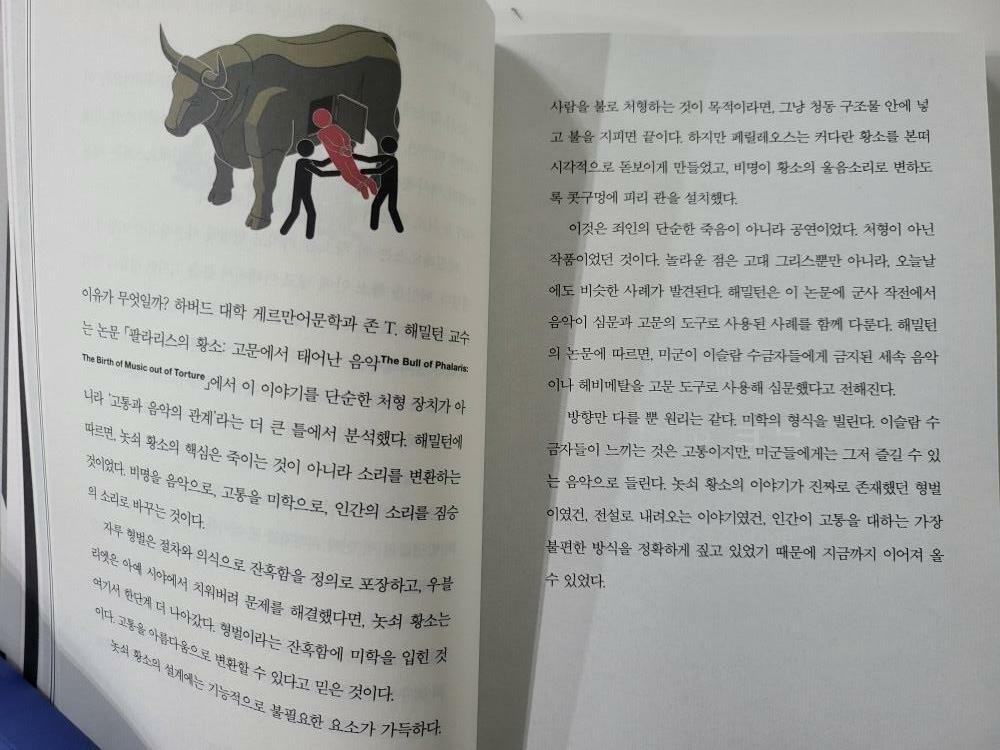 이유가 무엇일까? 하버드 대학 게르만어문학과 존 T. 해밀턴 교수
는 논문 「팔라리스의 황소: 고문에서 태어난 음악The Bull of Phalaris:
The Birth of Music out of Torture」에서 이 이야기를 단순한 처형 장치가 아
니라 '고통과 음악의 관계'라는 더 큰 틀에서 분석했다. 해밀턴에
따르면, 놋쇠 황소의 핵심은 죽이는 것이 아니라 소리를 변환하는
것이었다. 비명을 음악으로, 고통을 미학으로, 인간의 소리를 짐승
의 소리로 바꾸는 것이다.
자루 형벌은 절차와 의식으로 잔혹함을 정의로 포장하고, 우블
리엣은 아예 시야에서 치워버려 문제를 해결했다면, 놋쇠 황소는
여기서 한단계 더 나아갔다. 형벌이라는 잔혹함에 미학을 입힌 것
이다. 고통을 아름다움으로 변환할 수 있다고 믿은 것이다.
놋쇠 황소의 설계에는 기능적으로 불필요한 요소가 가득하다.
사람을 불로 처형하는 것이 목적이라면, 그냥 청동 구조물 안에 넣
고 불을 지피면 끝이다. 하지만 페릴레오스는 커다란 황소를 본떠
시각적으로 돋보이게 만들었고, 비명이 황소의 울음소리로 변하도
록 콧구멍에 피리 관을 설치했다.
이것은 죄인의 단순한 죽음이 아니라 공연이었다. 처형이 아닌
작품이었던 것이다. 놀라운 점은 고대 그리스뿐만 아니라, 오늘날
에도 비슷한 사례가 발견된다. 해밀턴은 이 논문에 군사 작전에서
음악이 심문과 고문의 도구로 사용된 사례를 함께 다룬다. 해밀턴
의 논문에 따르면, 미군이 이슬람 수금자들에게 금지된 세속 음악
이나 헤비메탈을 고문 도구로 사용해 심문했다고 전해진다.
방향만 다를 뿐 원리는 같다. 미학의 형식을 빌린다. 이슬람 수
금자들이 느끼는 것은 고통이지만, 미군들에게는 그저 즐길 수 있
는 음악으로 들린다. 놋쇠 황소의 이야기가 진짜로 존재했던 형벌
이었건, 전설로 내려오는 이야기였건, 인간이 고통을 대하는 가장
불편한 방식을 정확하게 짚고 있었기 때문에 지금까지 이어져 올
수 있었다.